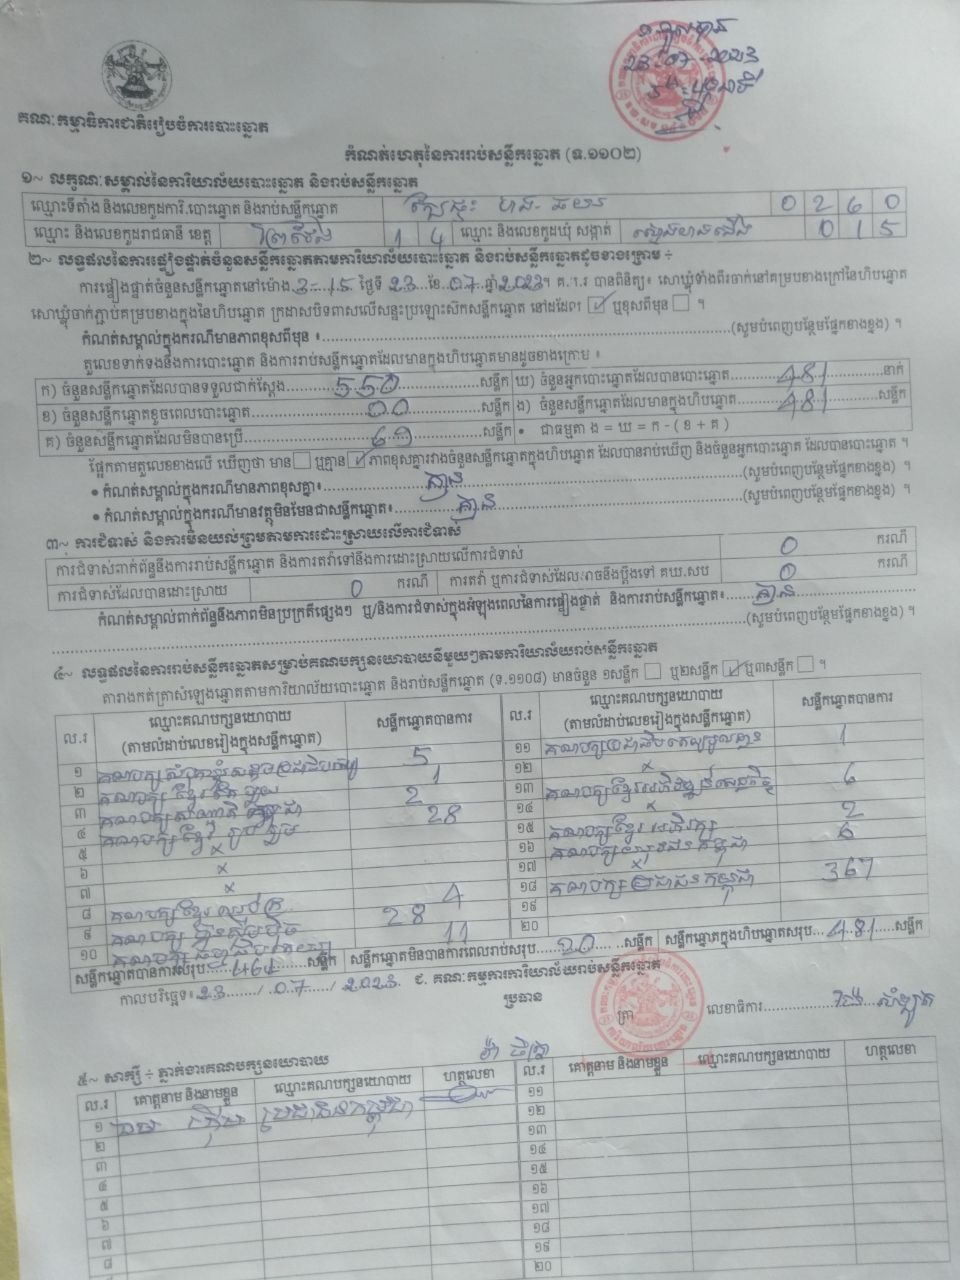 គណៈកម្មាធិការជាតិរៀបចំការបោះឆ្នោត
កំណត់ហេតុនៃការរាប់សន្លឹកឆ្នោត (ទ.១១០២)
១~ លក្ខណៈសម្គាល់នៃការិយាល័យបោះឆ្នោត និងរាប់សន្លឹកឆ្នោត
ឈ្មោះទីតាំង និងលេខកូដការិ.បោះឆ្នោត និងរាប់សន្លឹកឆ្នោត 0 2 6 0
ឈ្មោះ និងលេខកូដរាជធានី ខេត្ត ព្រៃវែង 1 4 ឈ្មោះ និងលេខកូដឃុំ សង្កាត់ 0 1 5
២~ លទ្ធផលនៃការផ្ទៀងផ្ទាត់ចំនួនសន្លឹកឆ្នោតតាមការិយាល័យបោះឆ្នោត និងរាប់សន្លឹកឆ្នោតដូចខាងក្រោម ÷
ការផ្ទៀងផ្ទាត់ចំនួនសន្លឹកឆ្នោតនៅម៉ោង 3 - 15 ថ្ងៃទី 23 ខែ 07 ឆ្នាំ 2023។ គ.ក.រ បានពិនិត្យ៖ សោឃ្លុំទាំងពីរចាក់នៅគម្របខាងក្រៅនៃហិបឆ្នោត
សោឃ្លុំចាក់ភ្ជាប់គម្របខាងក្នុងនៃហិបឆ្នោត ក្រដាសបិទពាសលើសន្ទះប្រឡោះស៊កសន្លឹកឆ្នោត នៅដដែល ឬខុសពីមុន ។
កំណត់សម្គាល់ក្នុងករណីមានភាពខុសពីមុន ៖ (សូមបំពេញបន្ថែមផ្នែកខាងខ្នង) ។
តួលេខទាក់ទងនឹងការបោះឆ្នោត និងការរាប់សន្លឹកឆ្នោតដែលមានក្នុងហិបឆ្នោតមានដូចខាងក្រោម ៖
ក) ចំនួនសន្លឹកឆ្នោតដែលបានទទួលជាក់ស្តែង 550 សន្លឹក ឃ) ចំនួនអ្នកបោះឆ្នោតដែលបានបោះឆ្នោត 481 នាក់
ខ) ចំនួនសន្លឹកឆ្នោតខូចពេលបោះឆ្នោត 00 សន្លឹក ង) ចំនួនសន្លឹកឆ្នោតដែលមានក្នុងហិបឆ្នោត 481 សន្លឹក
គ) ចំនួនសន្លឹកឆ្នោតដែលមិនបានប្រើ 69 សន្លឹក • ជាធម្មតា ង = ឃ = ក - ( ខ + គ )
ផ្អែកតាមតួលេខខាងលើ ឃើញថា មាន ឬគ្មាន ភាពខុសគ្នារវាងចំនួនសន្លឹកឆ្នោតក្នុងហិបឆ្នោត ដែលបានរាប់ឃើញ និងចំនួនអ្នកបោះឆ្នោត ដែលបានបោះឆ្នោត ។
• កំណត់សម្គាល់ក្នុងករណីមានភាពខុសគ្នា៖ គ្មាន (សូមបំពេញបន្ថែមផ្នែកខាងខ្នង) ។
• កំណត់សម្គាល់ក្នុងករណីមានវត្ថុមិនមែនជាសន្លឹកឆ្នោត៖ គ្មាន (សូមបំពេញបន្ថែមផ្នែកខាងខ្នង) ។
៣~ ការជំទាស់ និងការមិនយល់ព្រមតាមការដោះស្រាយលើការជំទាស់
ការជំទាស់ពាក់ព័ន្ធនឹងការរាប់សន្លឹកឆ្នោត និងការតវ៉ាទៅនឹងការដោះស្រាយលើការជំទាស់ 0 ករណី
ការជំទាស់ដែលបានដោះស្រាយ 0 ករណី ការតវ៉ា ឬការជំទាស់ដែលអាចនឹងប្តឹងទៅ គឃ.សប 0 ករណី
កំណត់សម្គាល់ពាក់ព័ន្ធនឹងភាពមិនប្រក្រតីផ្សេងៗ ឬ/និងការជំទាស់ក្នុងអំឡុងពេលនៃការផ្ទៀងផ្ទាត់ និងការរាប់សន្លឹកឆ្នោត៖ គ្មាន
(សូមបំពេញបន្ថែមផ្នែកខាងខ្នង) ។
៤~ លទ្ធផលនៃការរាប់សន្លឹកឆ្នោតសម្រាប់គណបក្សនយោបាយនីមួយៗតាមការិយាល័យរាប់សន្លឹកឆ្នោត
តារាងកត់ត្រាសំឡេងឆ្នោតតាមការិយាល័យបោះឆ្នោត និងរាប់សន្លឹកឆ្នោត (ទ.១១០៨) មានចំនួន ១សន្លឹក ឬ២សន្លឹក ឬ៣សន្លឹក ។
ល.រ ឈ្មោះគណបក្សនយោបាយ (តាមលំដាប់លេខរៀងក្នុងសន្លឹកឆ្នោត) សន្លឹកឆ្នោតបានការ
១ 5
២ គណបក្ស ខ្មែរ 1
៣ គណបក្ស 2
៤ គណបក្ស ខ្មែរ រួបរួម 28
៥ x
៦ x
៧ x
៨ គណបក្ស ខ្មែរ 4
៩ គណបក្ស 28
១០ គណបក្ស 11
ល.រ ឈ្មោះគណបក្សនយោបាយ (តាមលំដាប់លេខរៀងក្នុងសន្លឹកឆ្នោត) សន្លឹកឆ្នោតបានការ
១១ គណបក្ស 1
១២ x
១៣ គណបក្ស ខ្មែរ 6
១៤ x
១៥ គណបក្ស ខ្មែរ អភិរក្ស 2
១៦ គណបក្ស 6
១៧ x
១៨ គណបក្ស ប្រជាជនកម្ពុជា 367
១៩
២០
សន្លឹកឆ្នោតបានការសរុប 461 សន្លឹក សន្លឹកឆ្នោតមិនបានការពេលរាប់សរុប 20 សន្លឹក សន្លឹកឆ្នោតក្នុងហិបឆ្នោតសរុប 481 សន្លឹក
កាលបរិច្ឆេទ៖ 23 / 07 / 2023 ជ. គណៈកម្មការការិយាល័យរាប់សន្លឹកឆ្នោត
ប្រធាន ត្រា លេខាធិការ
៥~ សាក្សី ÷ ភ្នាក់ងារគណបក្សនយោបាយ
ល.រ គោត្តនាម និងនាមខ្លួន ឈ្មោះគណបក្សនយោបាយ ហត្ថលេខា
១ ប្រជាជនកម្ពុជា
២
៣
៤
៥
៦
៧
៨
ល.រ គោត្តនាម និងនាមខ្លួន ឈ្មោះគណបក្សនយោបាយ ហត្ថលេខា
១១
១២
១៣
១៤
១៥
១៦
១៧
១៨
១៩
២០